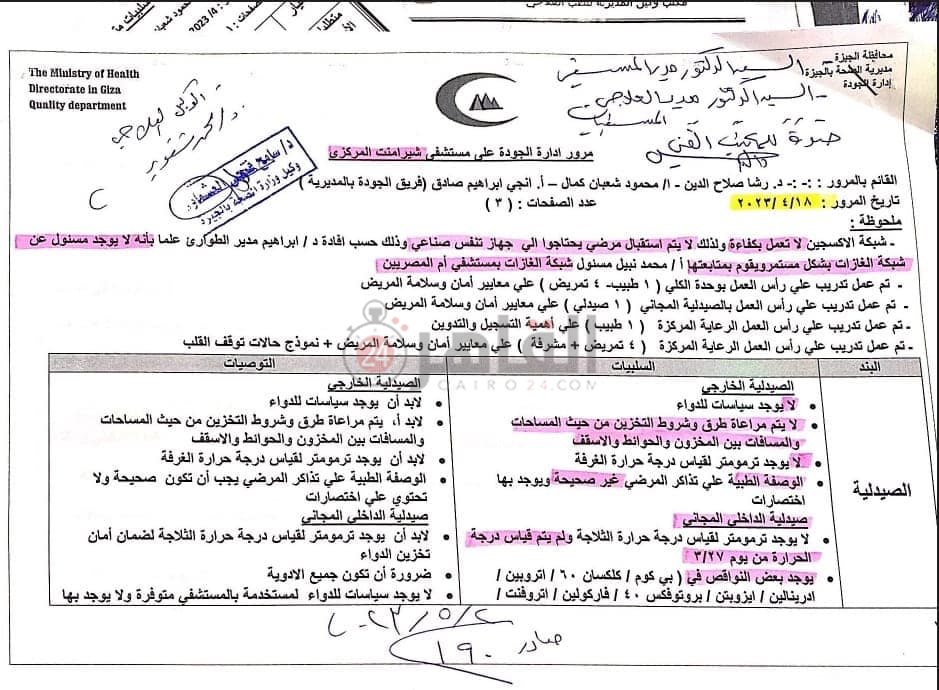 مكتب وكيل المديرية للطب العلاجي
محافظة الجيزة
مديرية الصحة بالجيزة
إدارة الجودة
The Ministry of Health
Directorate in Giza
Quality department
السيد الدكتور مدير المستشفى
السيد الدكتور مدير
صورة للمكتب الفني
د/ سامح
وكيل وزارة الصحة بالجيزة
مرور ادارة الجودة علي مستشفي شبرامنت المركزي
القائم بالمرور : -:- د. رشا صلاح الدين - ا/ محمود شعبان كمال – أ. انجي ابراهيم صادق (فريق الجودة بالمديرية )
تاريخ المرور : ٢٠٢٣/٤/١٨
عدد الصفحات : ( ٣ )
ملحوظة :
- شبكة الاكسجين لا تعمل بكفاءة ولذلك لا يتم استقبال مرضي يحتاجوا الي جهاز تنفس صناعي وذلك حسب افادة د / ابراهيم مدير الطوارئ علما بأنه لا يوجد مسئول عن
شبكة الغازات بشكل مستمر ويقوم بمتابعتها أ / محمد نبيل مسئول شبكة الغازات بمستشفي أم المصريين
- تم عمل تدريب علي رأس العمل بوحدة الكلي ( ١ طبيب- ٤ تمريض ) علي معايير أمان وسلامة المريض
- تم عمل تدريب علي رأس العمل بالصيدلية المجاني ( ١ صيدلي ) علي معايير أمان وسلامة المريض
- تم عمل تدريب علي رأس العمل الرعاية المركزة ( ١ طبيب ) علي أهمية التسجيل والتدوين
- تم عمل تدريب علي رأس العمل الرعاية المركزة ( ٤ تمريض + مشرفة ) علي معايير أمان وسلامة المريض + نموذج حالات توقف القلب
القاهرة 24
CAIRO24.COM
البند
السلبيات
التوصيات
الصيدلية
الصيدلية الخارجي
• لا يوجد سياسات للدواء
• لا يتم مراعاة طرق وشروط التخزين من حيث المساحات
والمسافات بين المخزون والحوائط والاسقف
• لا يوجد ترمومتر لقياس درجة حرارة الغرفة
• الوصفة الطبية علي تذاكر المرضي غير صحيحة ويوجد بها
اختصارات
صيدلية الداخلي المجاني
• لا يوجد ترمومتر لقياس درجة حرارة الثلاجة ولم يتم قياس درجة
الحرارة من يوم ٣/٢٧
• يوجد بعض النواقص في ( بي كوم / كلكسان ٦٠ / اتروبين /
ادرينالين / ايزوبتن / بروتوفكس ٤٠ / فاركولين / اتروفنت /
الصيدلية الخارجي
• لابد أن يوجد سياسات للدواء
• لابد أ، يتم مراعاة طرق وشروط التخزين من حيث المساحات
والمسافات بين المخزون والحوائط والاسقف
• لابد أن يوجد ترمومتر لقياس درجة حرارة الغرفة
• الوصفة الطبية علي تذاكر المرضي يجب أن تكون صحيحة ولا
تحتوي علي اختصارات
صيدلية الداخلي المجاني
• لابد أن يوجد ترمومتر لقياس درجة حرارة الثلاجة لضمان أمان
تخزين الدواء
• ضرورة أن تكون جميع الادوية
• لا يوجد سياسات للدواء لمستخدمة بالمستشفي متوفرة ولا يوجد بها
٢٠٢٣/٥/٢
صادر ١٩٠